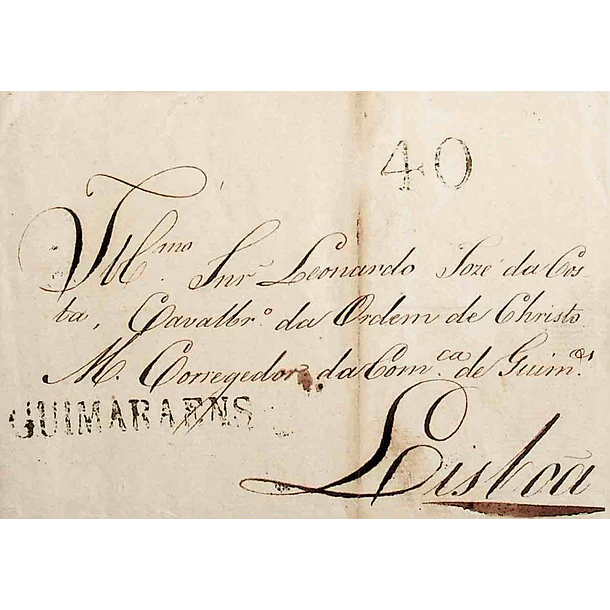 40
Illmo. Snr. Leonardo José da Cos-
ta, Cavalhro. da Ordem de Christo
M. Corregedor da Comca. de Guimes.
GUIMARAENS
Lisboa